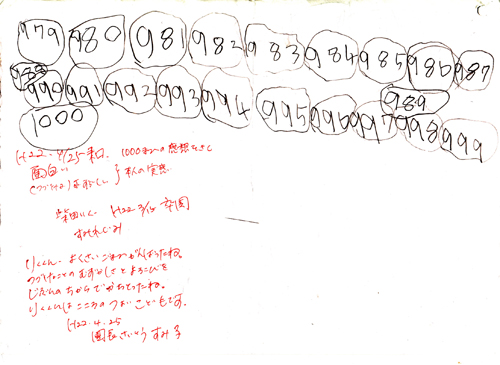 979 980 981 982 983 984 985 986 987
988 989
990 991 992 993 994 995 996 997 998 999
1000
H22.4/25 1000 の感想
面白い
つづける 本人の実感
H22 3/15 卒園
すみれぐみ
りくくん よくさいごまでがんばったね。
つづけることのむずかしさとよろこびを
じぶんのちからでかちとったね。
りくくんはこころのつよいこどもです。
H22.4.25
園長 さいとう すみ子